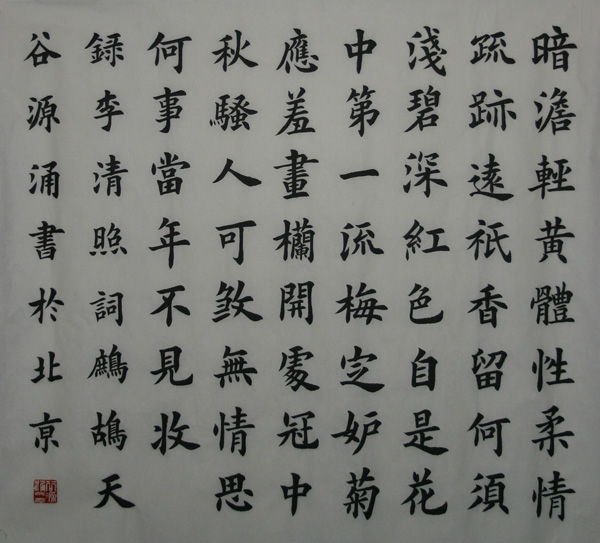 暗澹輕黄體性柔情
疏跡遠祇香留何須
淺碧深紅色自是花
中第一流梅定妒菊
應羞畫欄開處冠中
秋騷人可煞無情思
何事當年不見收
録李清照詞鷓鴣天
谷源涌書於北京